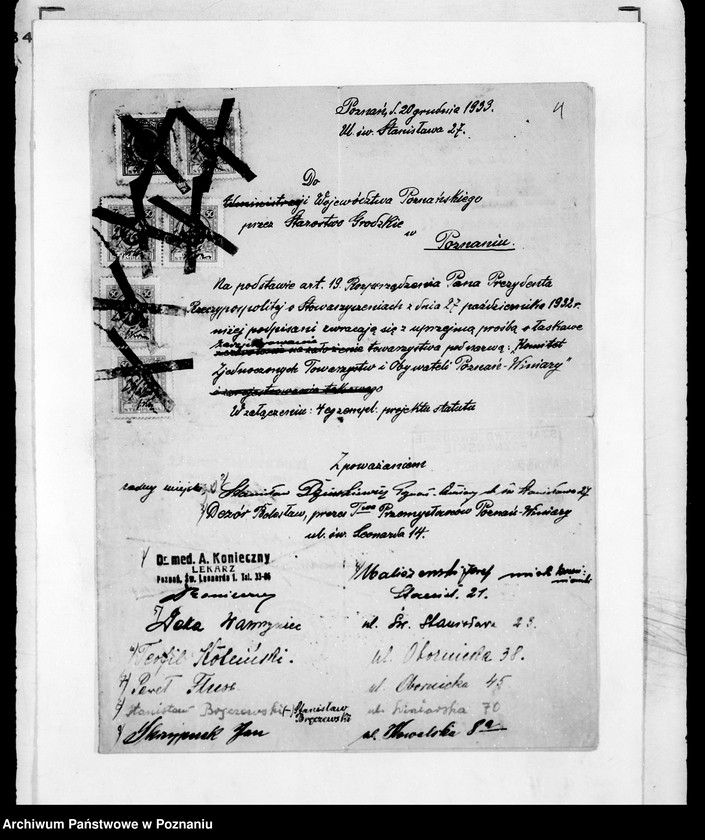 4
Poznań, d. 20 grudnia 1933.
Ul. św. Stanisława 27.
Do
Administracji Województwa Poznańskiego
przez Starostwo Grodzkie
w
Poznaniu.
Na podstawie art. 19. Rozporządzenia Pana Prezydenta
Rzeczypospolitej o Stowarzyszeniach z dnia 27 października 1932 r.
niżej podpisani zwracają się z uprzejmą prośbą o łaskawe
towarzystwa pod nazwą: „Komitet
Zjednoczonych Towarzystw i Obywateli Poznań-Winiary"
i zarejestrowanie takowego
W załączeniu: 4 egzempl. projektu statutu
Z poważaniem
radny miejski Stanisław św. Stanisława 27
Dezór Bolesław, prezes Tiwa Przemysłowców Poznań-Winiary
ul. św. Leonarda 14.
Dr. med. A. Konieczny
LEKARZ
Poznań, Św. Leonarda 1. Tel. 33-06
AKonieczny
Józef
21.
Deka Wawrzyniec ul. Św. Stanisława 23.
Teofil ul. Obornicka 38.
Paweł ul. Obornicka 45
Stanisław Bręczewski (-) Stanisław Bręczewski ul. Winiarska 70
Skrzypczak Jan ul. Kowalska 8a
Archiwum Państwowe w Poznaniu